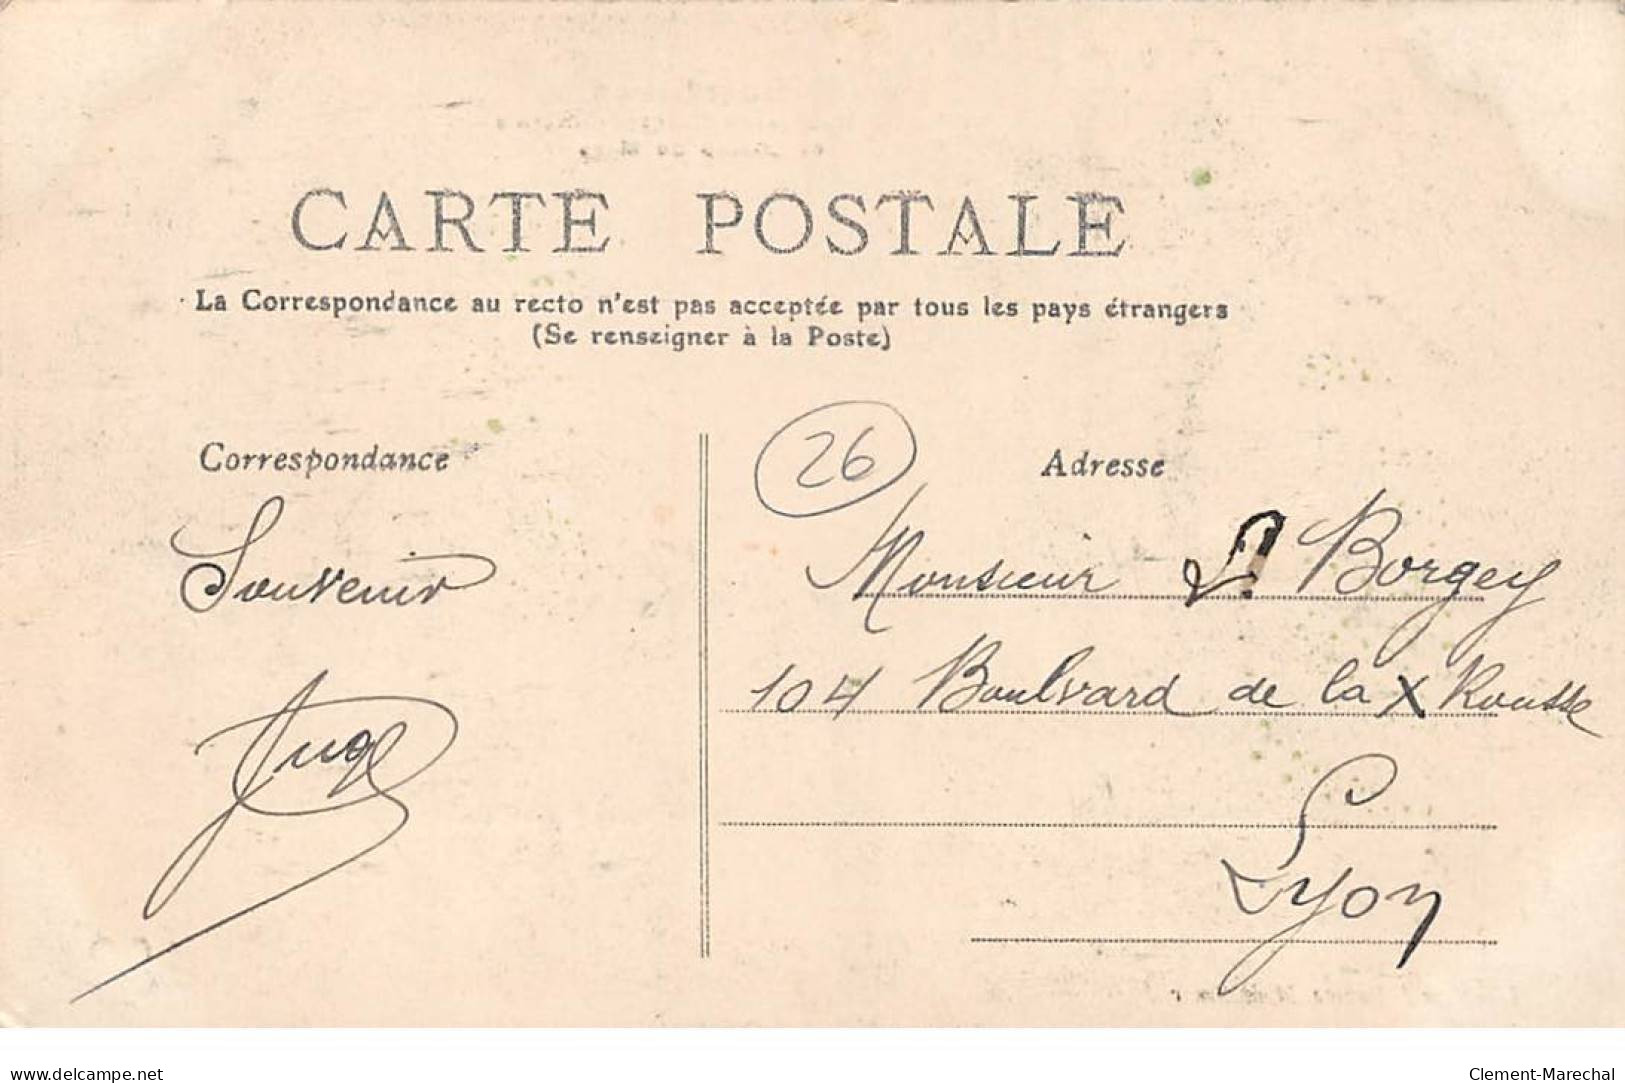 CARTE POSTALE
La Correspondance au recto n'est pas acceptée par tous les pays étrangers
(Se renseigner à la Poste)
Correspondance
Souvenir
26
Adresse
Monsieur Borgey
104 Boulvard de la X Rousse
Lyon
www.delcampe.net
Clement-Marechal